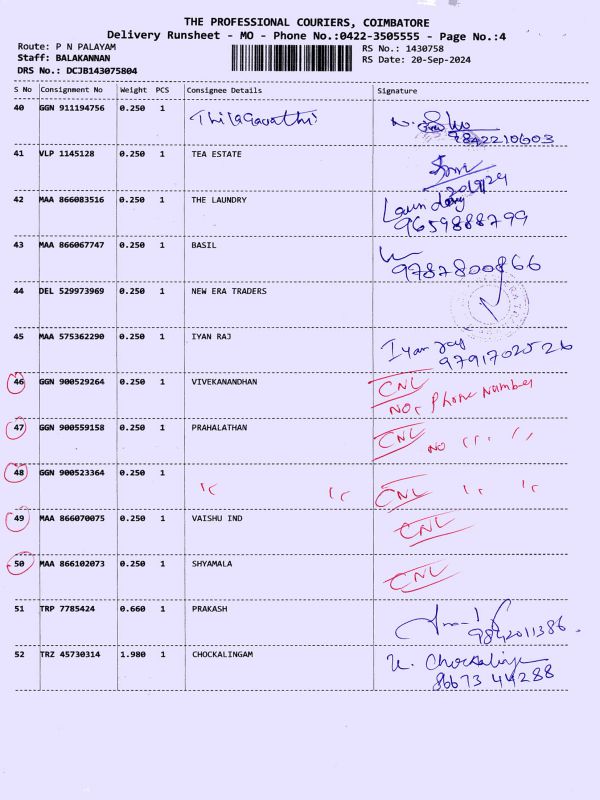 THE PROFESSIONAL COURIERS, COIMBATORE
Delivery Runsheet - MO - Phone No.:0422-3505555 - Page No.:4
Route: P N PALAYAM RS No.: 1430758
Staff: BALAKANNAN RS Date: 20-Sep-2024
DRS No.: DCJB143075804
S No Consignment No Weight PCS Consignee Details Signature
40 GGN 911194756 0.250 1 Thilagavathi
9842210603
41 VLP 1145128 0.250 1 TEA ESTATE
20/9/24
42 MAA 866083516 0.250 1 THE LAUNDRY Laundry
9659888799
43 MAA 866067747 0.250 1 BASIL
9787800866
44 DEL 529973969 0.250 1 NEW ERA TRADERS
45 MAA 575362290 0.250 1 IYAN RAJ Iyan raj
9791702526
46 GGN 900529264 0.250 1 VIVEKANANDHAN CNL
NO, Phone Number
47 GGN 900559158 0.250 1 PRAHALATHAN CNL NO " "
48 GGN 900523364 0.250 1 " " CNL " "
49 MAA 866070075 0.250 1 VAISHU IND CNL
50 MAA 866102073 0.250 1 SHYAMALA CNL
51 TRP 7785424 0.660 1 PRAKASH
9842011386
52 TRZ 45730314 1.980 1 CHOCKALINGAM K. Chockalingam
86673 44288